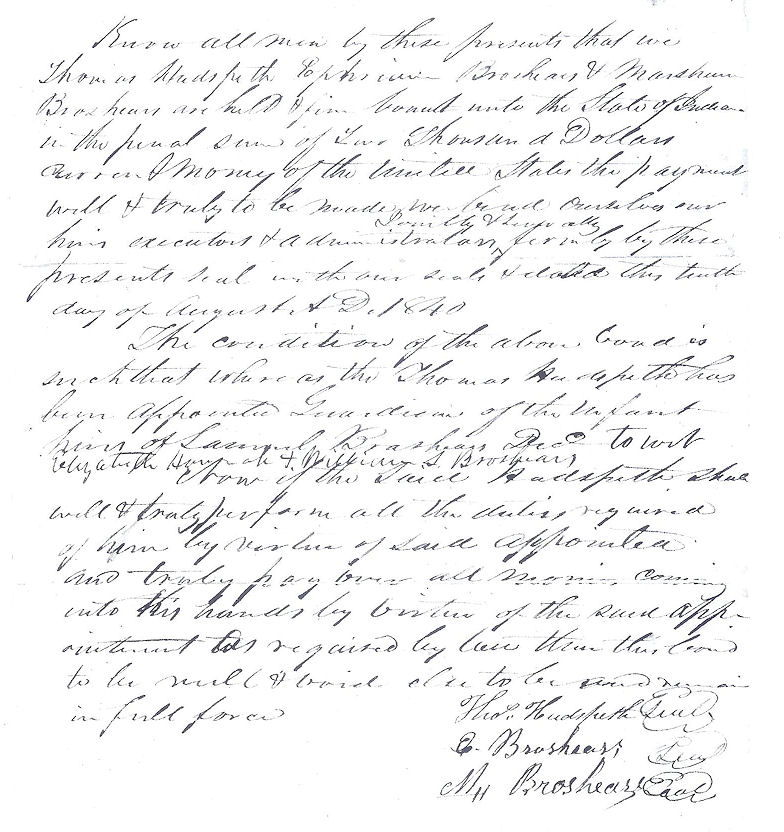 Know all men by these presents that we
Thomas Hudspeth Ephriaim Broshears & Marsham
Broshears are held & firm bound unto the State of Indiana
in the penal sum of Two Thousand Dollars
current money of the United States the payment
will & truly to be made, we bind ourselves our
Jointly & severally
heirs executors & administrators, firmly by these
presents seal with our seals & dated this tenth
day of August A D. 1840
The condition of the above bond is
such that where as the Thomas Hudspeth has
been appointed Guardian of the infant
heirs of Samuel Brashears Decd to wit
Elizabeth Hannah & William S. Broshears
Now if the said Hudspeth shall
well & truly perform all the duties required
of him by virtue of said appointed
and truly pay over all monies coming
into his hands by virtue of the said app-
ointment as required by law then this bond
to be null & void else to be and remain
in full force
Thos. Hudspeth Seal
E. Broshears Seal
MH Broshears Seal